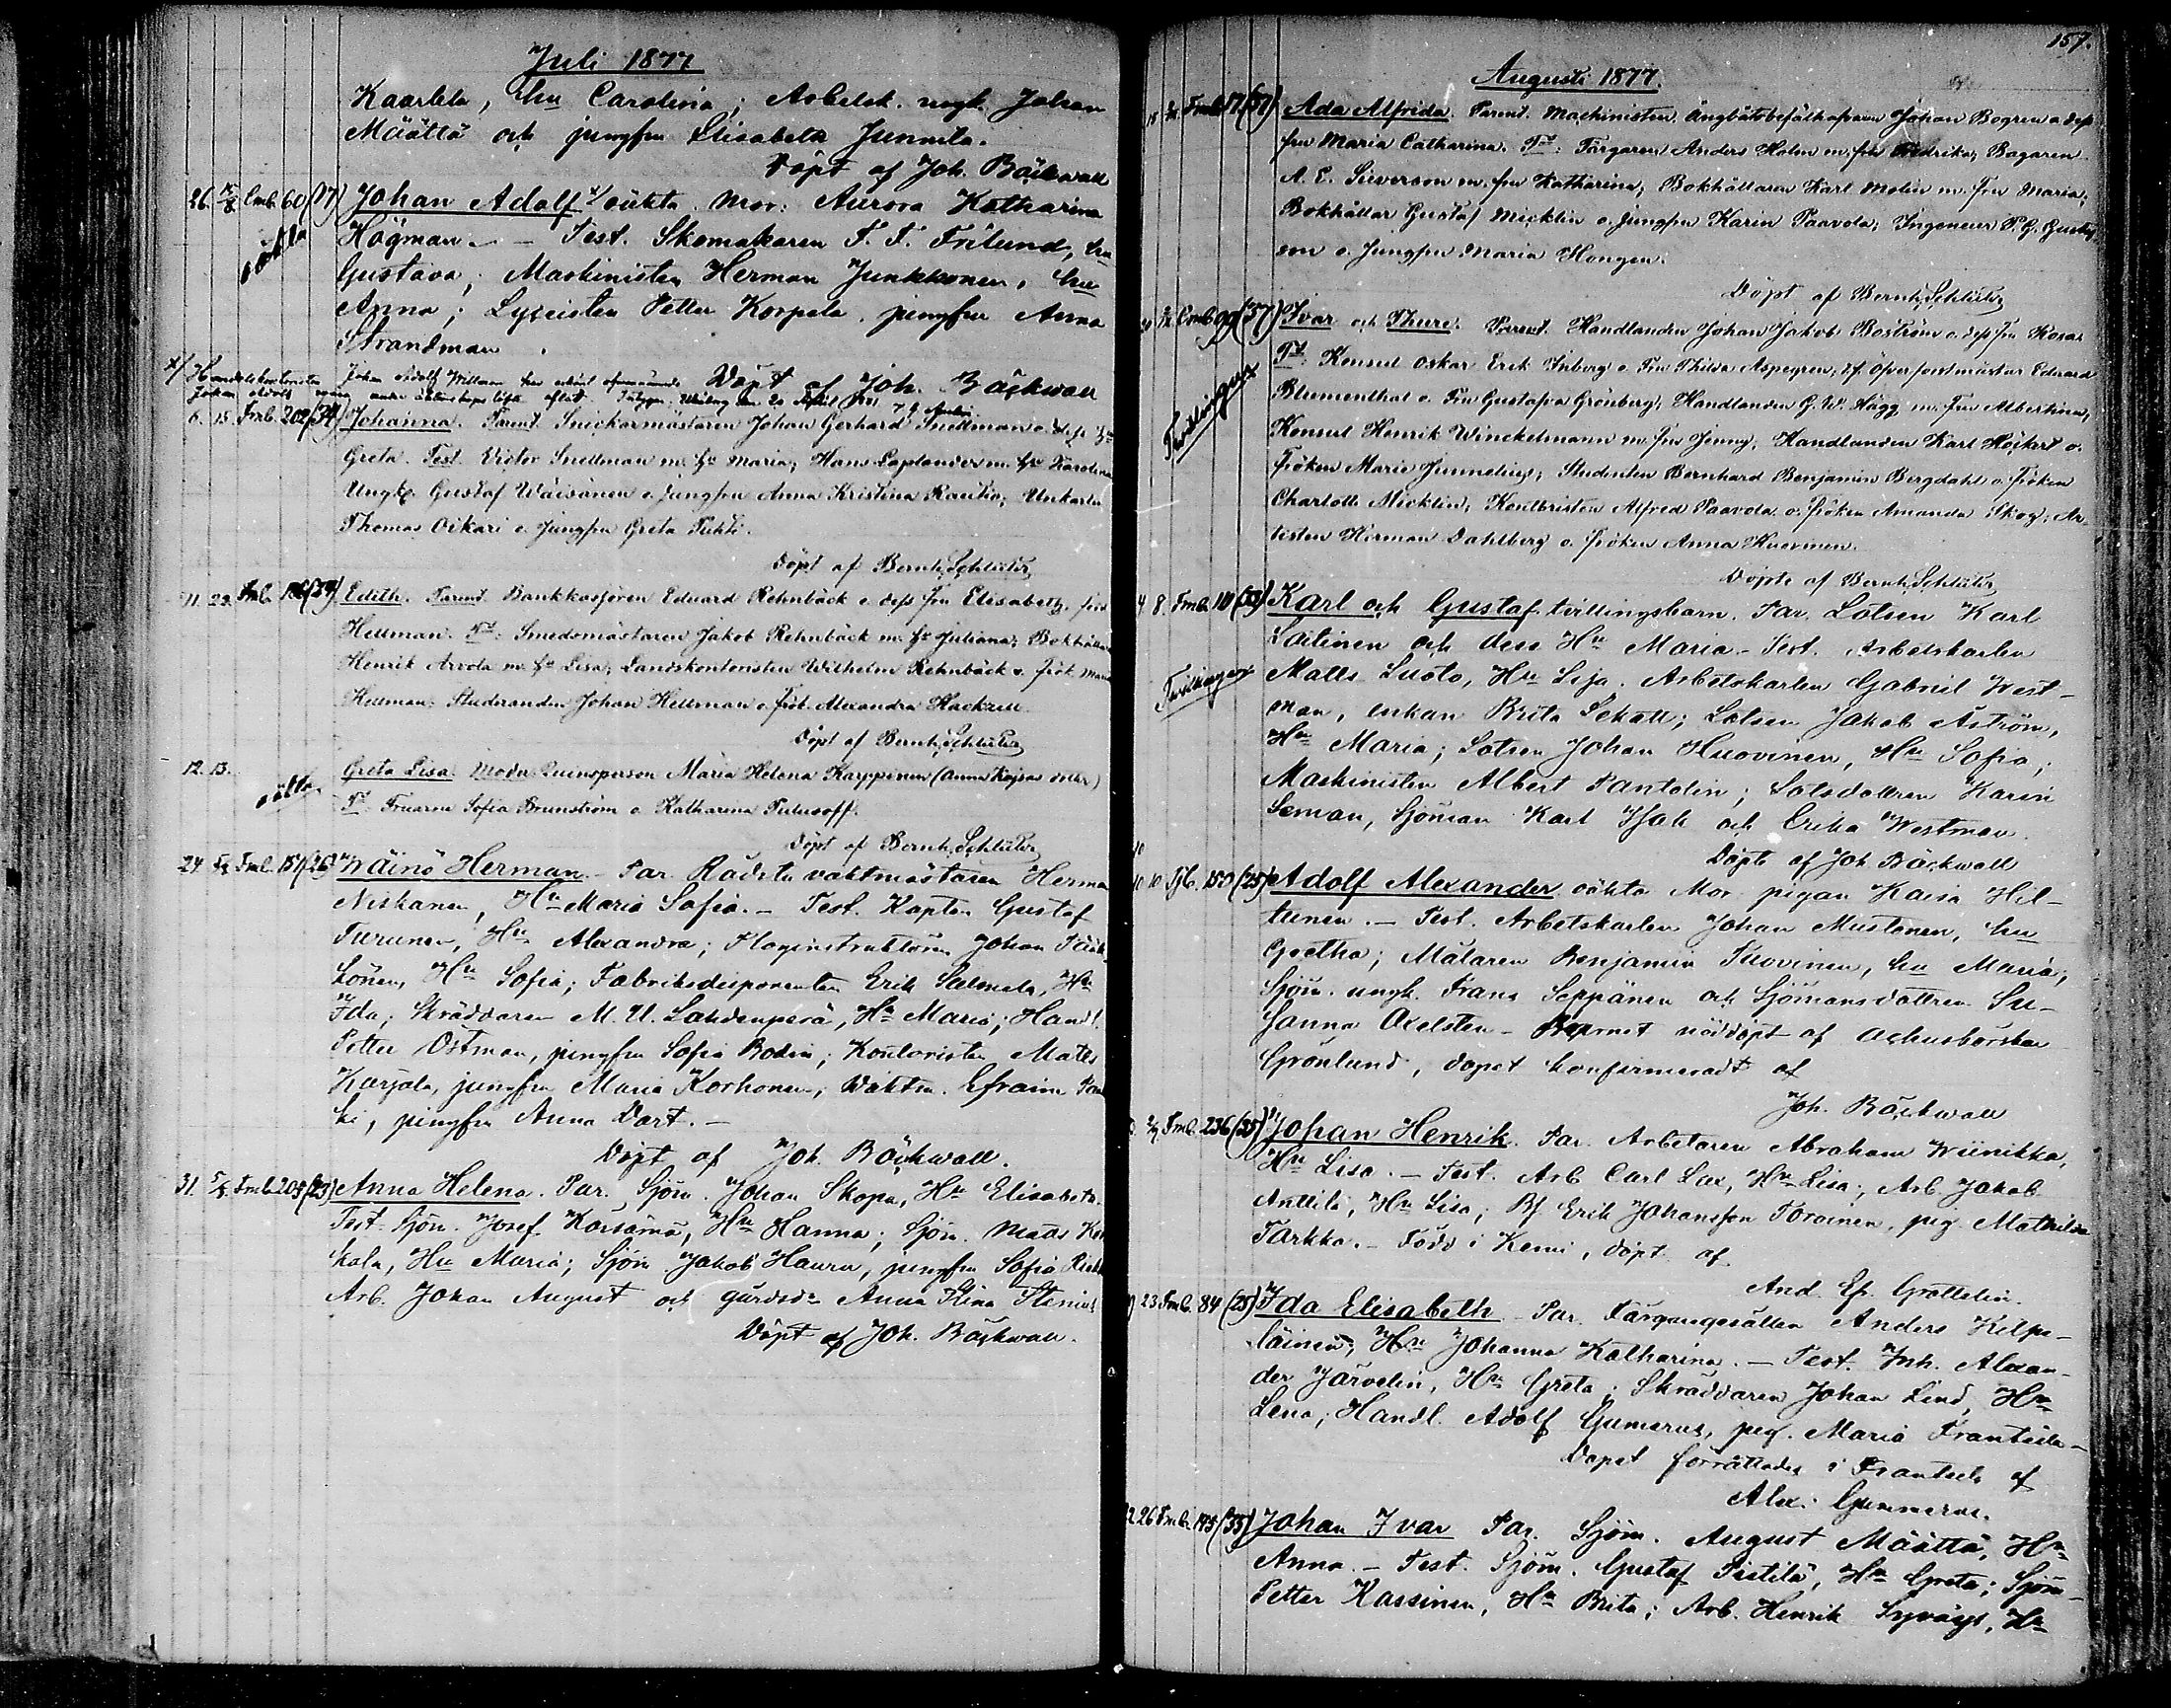 Juli 1877
Kaarlela, hu Carolina; Arbetsk. ungk. Johan
Määttä och jungfru Elisabeta Junnila.
Döpt af Joh. Bäckwall
26. Cmb. 60 (17) Johan Adolf x/ oäkta. Mor: Aurora Katharina
oäkta Högman. – Test. Skomakaren F. F. Frilund, hu
Gustava; Maskinisten Herman Junkkonen, hu
Anna; Lyceisten Petter Korpela, jungfru Anna
Strandman.
Döpt af Joh. Bäckwall
x/ Handelskontoristen Johan Adolf Willman har erkänt
6. 15. Fmb. 202 (34) Johanna. Parent. Snickarmästaren Johan Gerhard Snellman o. dess hu
Greta. Test. Victor Snellman m. hu Maria; Hans Laplander m. hu Karolina
Ungk. Gustaf Wäisänen o. jungfru Anna Kristina Rautio; Unkarlen
Thomas Oikari o. jungfru Greta Tuhti.
Döpt af Bernh. Schlüter
11. 29. Fmb. (34) Edith. Parent. Bankkassören Eduard Rehnbäck o. dess fru Elisabeth, född
Hellman. Tt: Smedsmästaren Jakob Rehnbäck m. hu Juliana; Bokhållar
Henrik Arvola m. hu Lisa; Landskontoristen Wilhelm Rehnbäck o. frök. Maria
Hellman; Studeranden Johan Hellman o. frök. Alexandra Hackzell.
Döpt af Bernh. Schlüter
12. 13. Greta Lisa. Moder Qvinsperson Maria Helena Karppinen (Anna Kajsas dotter)
oäkta Tt Fruarna Sofia Brunström o. Katharina
Döpt af Bernh. Schlüter
24. Fmb. 157 (26) Wäinö Herman – Par. Rådstuvaktmästaren Herman
Niskanen, Hu Maria Sofia. – Test. Kapten Gustaf
Turunen, Hu Alexandra; Ploginstruktören Johan
Hu Sofia; Fabriksdisponenten Erik Salmela, Hu
Ida; Skräddaren M. U. Lahdenperä, Hu Maria; Handl.
Petter Östman, jungfru Sofia Bodin; Kontoristen Matts
Karjala, jungfru Maria Korhonen; Waktm. Efraim
jungfru Anna Dart. –
Döpt af Joh. Bäckwall.
31. Fmb. 205 (23) Anna Helena. Par. Sjöm. Johan Skopa, Hu Elisabeta.
Test. Sjöm. Josef Karsämä, Hu Hanna; Sjöm. Mads
Hu Maria; Sjöm. Jakob Hauru, jungfru Sofia
Arb. Johan August och gårdsdr Anna Stina Stenius
Döpt af Joh. Bäckwall.
157.
Augusti 1877.
Fmb. 17 (37) Ada Alfrida. Parent. Machinisten Johan Bogren o. dess
fru Maria Catharina. Tt: Färgaren Anders Holm m. fru Fredrika; Bagaren
A. E. Sieverson m. fru Katharina; Bokhållaren Karl Molin m. fru Maria;
Bokhållar Gustaf Micklin o. jungfru Karin Paavola; Ingeneur P. G. Gustaf
son o. Jungfru Maria Hongen.
Döpt af Bernh. Schlüter
Cmb. 99 (37) Ivar och Thure. Parent. Handlanden Johan Jakob Boström o. dess fru Rosa.
Tvillingar Tt: Konsul Oskar Erik Inberg o. Fru Thilda Aspegren, Öfverforstmästar Edvard
Blumenthal o. Fru Gustafva Grönberg; Handlanden G. W. Hägg m. fru Albertina;
Konsul Henrik Winckelmann m. fru Jenny; Handlanden Karl Höckert o.
Fröken Maria Junnelius; Studenten Bernhard Benjamin Bergdahl o. fröken
Charlotte Micklin; Kontoristen Alfred Paavola o. fröken Amanda Skog; Ar-
tisten Herman Dahlberg o. fröken Anna Huovinen.
Döpte af Bernh. Schlüter
4 8. Fmb. 110 (33) Karl och Gustaf tvillingsbarn. Par. Lotsen Karl
Laitinen och dess Hu Maria. – Test. Arbetskarlen
Tvillingar Matts Luoto, Hu Lisa. Arbetskarlen Gabriel West-
man, enkan Brita Sekatt; Lotsen Jakob Åström,
Hu Maria; Lotsen Johan Huovinen, Hu Sofia;
Maskinisten Albert Pantolin; Lotsdottren Karin
Seman, Sjöman Karl Isak och Erika Westman.
Döpte af Joh. Bäckwall
10 10 Pjb. 150 (25) Adolf Alexander oäkta Mor pigan Kaisa Hil-
tunen. – Test. Arbetskarlen Johan Mustonen, hu
Gretha; Målaren Benjamin Huovinen, hu Maria;
Sjöm. ungk. Frans Seppänen och Sjömansdottren Su-
sanna Axelsten – Barnet nöddöpt af
Grönlund, dopet konfirmeradt af
Joh. Bäckwall
Fmb. 236 (35) Johan Henrik. Par. Arbetaren Abraham Wiinikka,
Hu Lisa. – Test. Arb. Carl Lax, Hu Lisa; Arb. Jakob
Anttila, Hu Lisa; Bf Erik Johansson Toroinen, pig. Mathilda
Tarkka. – Född i Kemi, döpt af
And. Ef. Grottelin.
23 Fmb. 84 (25) Ida Elisabeth – Par. Färgaregesällen Anders Kilpe-
läinen, Hu Johanna Katharina. – Test. Inh. Alexan-
der Järvelin, Hu Greta; Skräddaren Johan Lind, Hu
Lena; Handl. Adolf Gumerus, pig. Maria Frantsila –
Dopet förrättades i Frantsila af
Alex. Gummerus.
22 26 Fmb. 145 (35) Johan Ivar Par. Sjöm. August Määttä, Hu
Anna. – Test. Sjöm. Gustaf Pistilä, Hu Greta; Sjöm.
Petter Kassinen, Hu Brita; Arb. Henrik Syväys, Hu